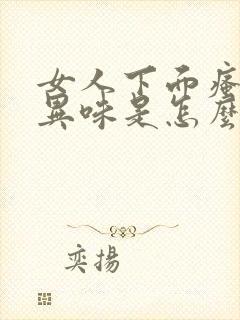 女人下面瘙
異味是怎麼
奕揚